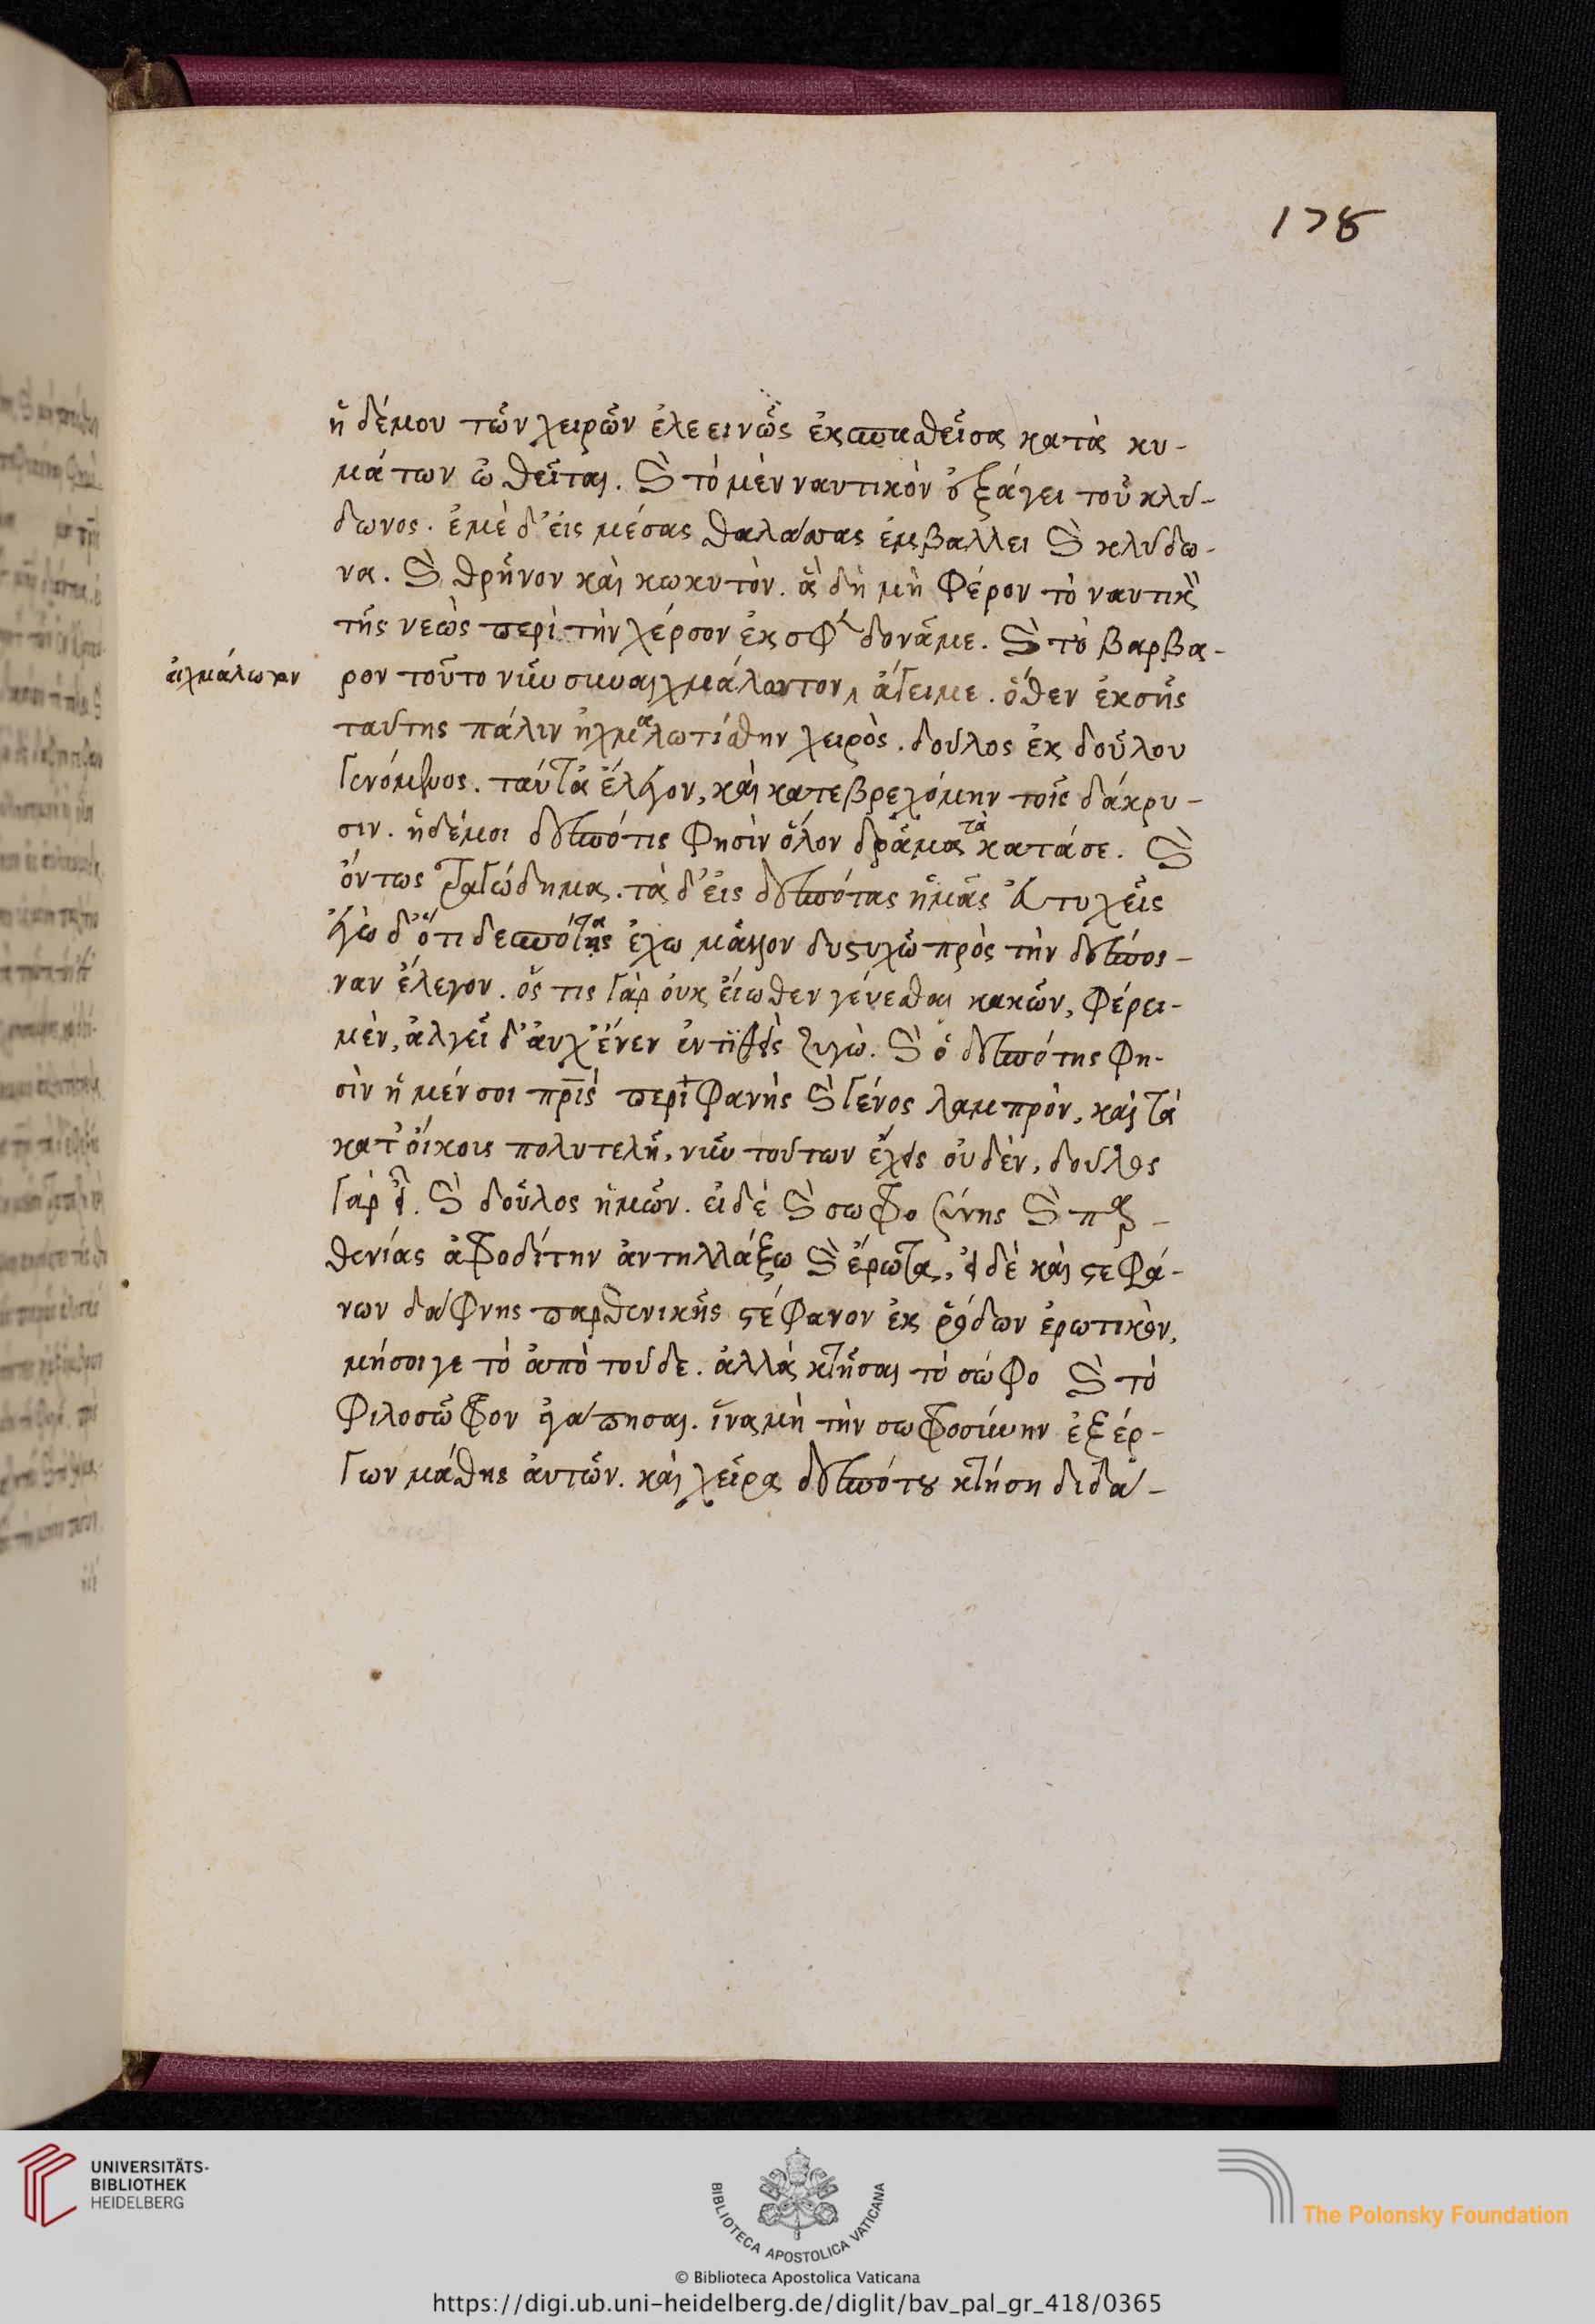 178
ἡ δέ μου τῶν χειρῶν ἐλεεινῶς ἐκσπασθεῖσα κατὰ κυ-
μάτων ὠθεῖται. καὶ τὸ μὲν ναυτικὸν ἐξάγει τοῦ κλύ-
δωνος. ἐμὲ δ' εἰς μέσας θαλάσσας ἐμβάλλει καὶ κλύδω-
να. καὶ θρῆνον καὶ κωκυτόν. ἃ δὴ μὴ φέρον τὸ ναυτικὸν
τῆς νεὼς περὶ τὴν χέρσον ἐκσφενδονᾶ με. καὶ τὸ βάρβα-
αἰχμάλωτον
ρον τοῦτο νῦν συναιχμάλωτον, ἄγει με. ὅθεν ἐκ σῆς
ταύτης πάλιν ᾐχμαλωτίσθην χειρὸς. δοῦλος ἐκ δούλου
γενόμενος. ταῦτα ἔλεγον, καὶ κατεβρεχόμην τοῖς δάκρυ-
σιν. ἡ δέ μοι δεσπότις φησὶν ὅλον δρᾶμα τὰ κατὰ σέ. καὶ
ὄντως τραγώδημα. τὰ δ' εἰς δεσπότας ἡμᾶς εὐτυχεῖς
ἐγὼ δ' ὅτι δεσπότας ἔχω μᾶλλον δυστυχῶ πρὸς τὴν δέσποι-
ναν ἔλεγον. ὅς τις γὰρ οὐκ εἴωθεν γεύεσθαι κακῶν, φέρει
μὲν, ἀλγεῖ δ' αὐχέν' ἐντιθεὶς ζυγῷ. καὶ ὁ δεσπότης φη-
σὶν ἦ μέν σοι πατρὶς περιφανὴς καὶ γένος λαμπρὸν, καὶ τὰ
κατ' οἴκοις πολυτελῆ, νῦν τούτων ἔχεις οὐδὲν, δοῦλος
γὰρ εἶ. καὶ δοῦλος ἡμῶν. εἰ δὲ καὶ σωφροσύνης καὶ παρ-
θενίας ἀφροδίτην ἀντηλλάξω καὶ ἔρωτα, εἰ δὲ καὶ στεφά-
νων δάφνης παρθενικῆς στέφανον ἐκ ῥόδων ἐρωτικὸν,
μή σοι γε τὸ ἀπὸ τοῦδε. ἀλλὰ κτῆσαι τὸ σῶφρο καὶ τὸ
φιλοσῶφρον ἀγάπησαι. ἵνα μὴ τὴν σωφροσύνην ἐξ ἔρ-
γων μάθῃς αὐτῶν. καὶ χεῖρα δεσπότου κτήσῃ διδά-
UNIVERSITÄTS-
BIBLIOTHEK
HEIDELBERG
BIBLIOTECA APOSTOLICA VATICANA
The Polonsky Foundation
© Biblioteca Apostolica Vaticana
https://digi.ub.uni-heidelberg.de/diglit/bav_pal_gr_418/0365